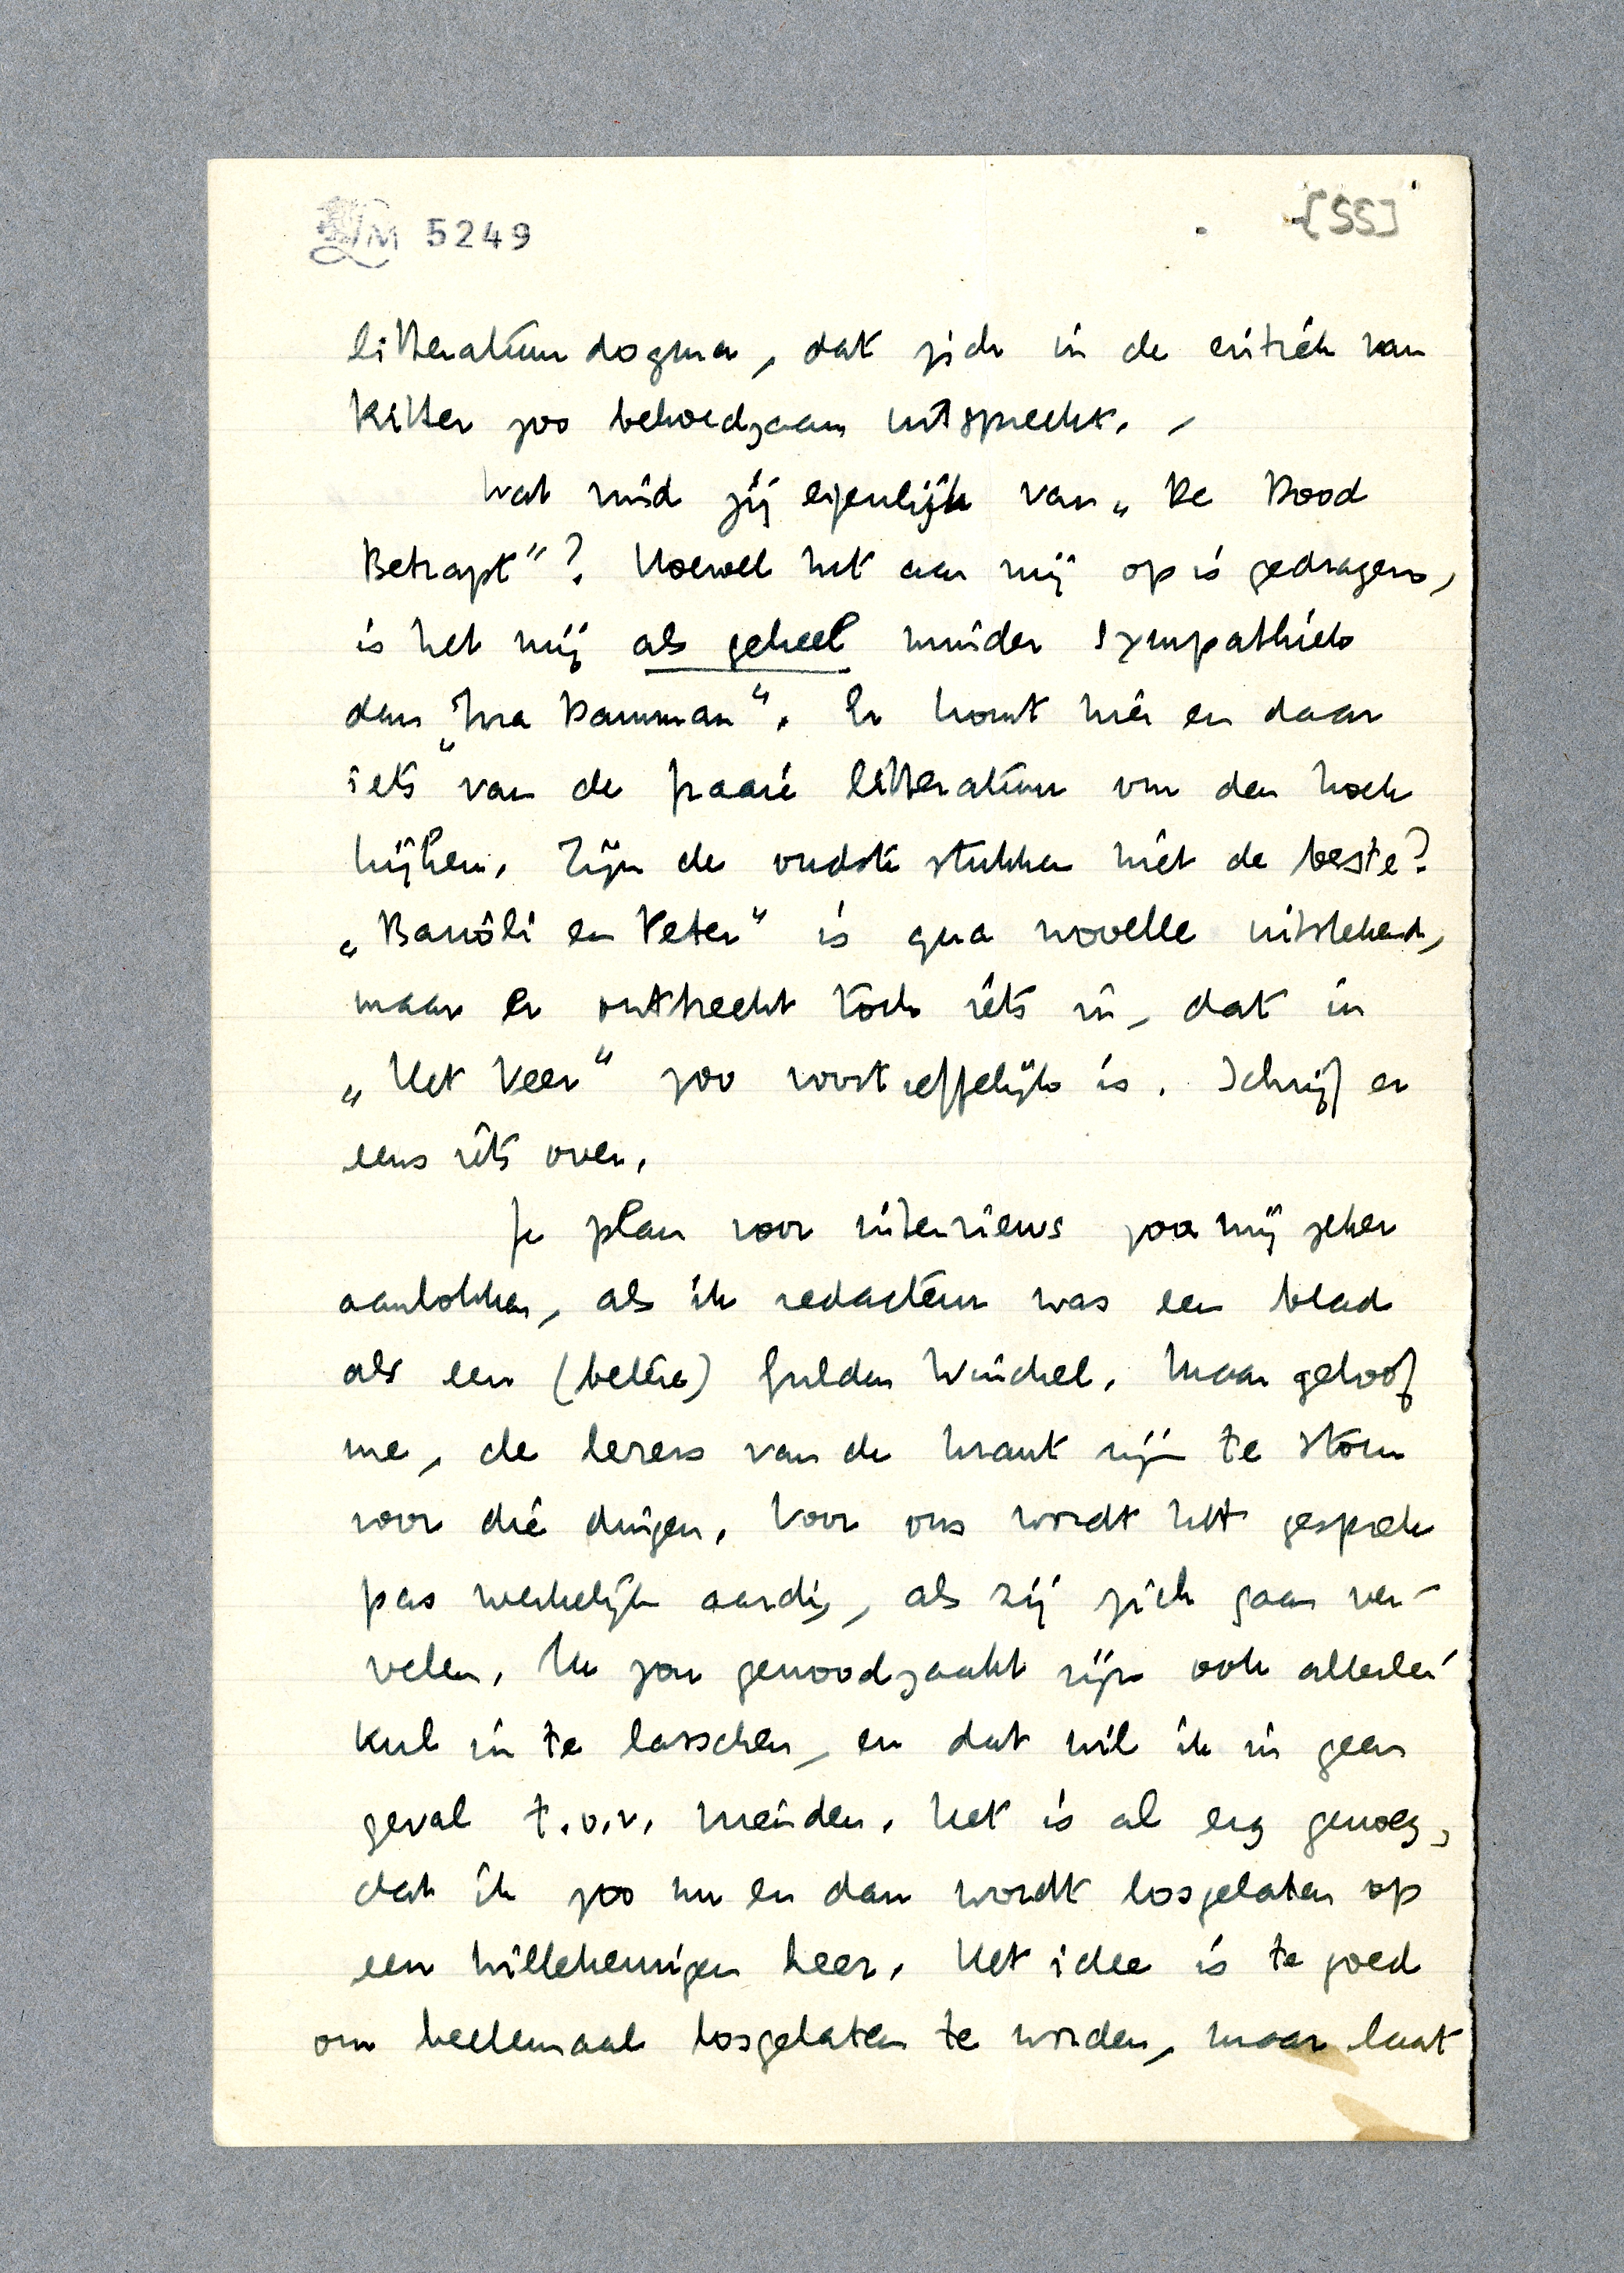 LM 5249
[55]
litteratuurdogma, dat zich in de critiek van
Ritter zoo behoedzaam uitspreekt. –
Wat vind jij eigenlijk van „De Dood
Betrapt"? Hoewel het aan mij op is gedragen,
is het mij als geheel minder sympathiek
dan „Ina Damman". Er komt hier en daar
iets van de fraaie litteratuur om den hoek
kijken. Zijn de oudste stukken niet de beste?
„Barioli en Peter" is qua novelle uitstekend,
maar er ontbreekt toch iets in, dat in
„Het Veer" zoo voortreffelijk is. Schrijf er
eens iets over.
Je plan voor interviews zou mij zeker
aanlokken, als ik redacteur was een blad
als een (betere) Gulden Winckel. Maar geloof
me, de lezers van de krant zijn te stom
voor die dingen. Voor ons wordt het gesprek
pas werkelijk aardig, als zij zich gaan ver-
velen. Men zou genoodzaakt zijn ook allerlei
kul in te lasschen, en dat wil ik in geen
geval t.o.v. vrienden. Het is al erg genoeg,
dat ik zoo nu en dan wordt losgelaten op
een willekeurigen heer. Het idee is te goed
om heelemaal losgelaten te worden, maar laat